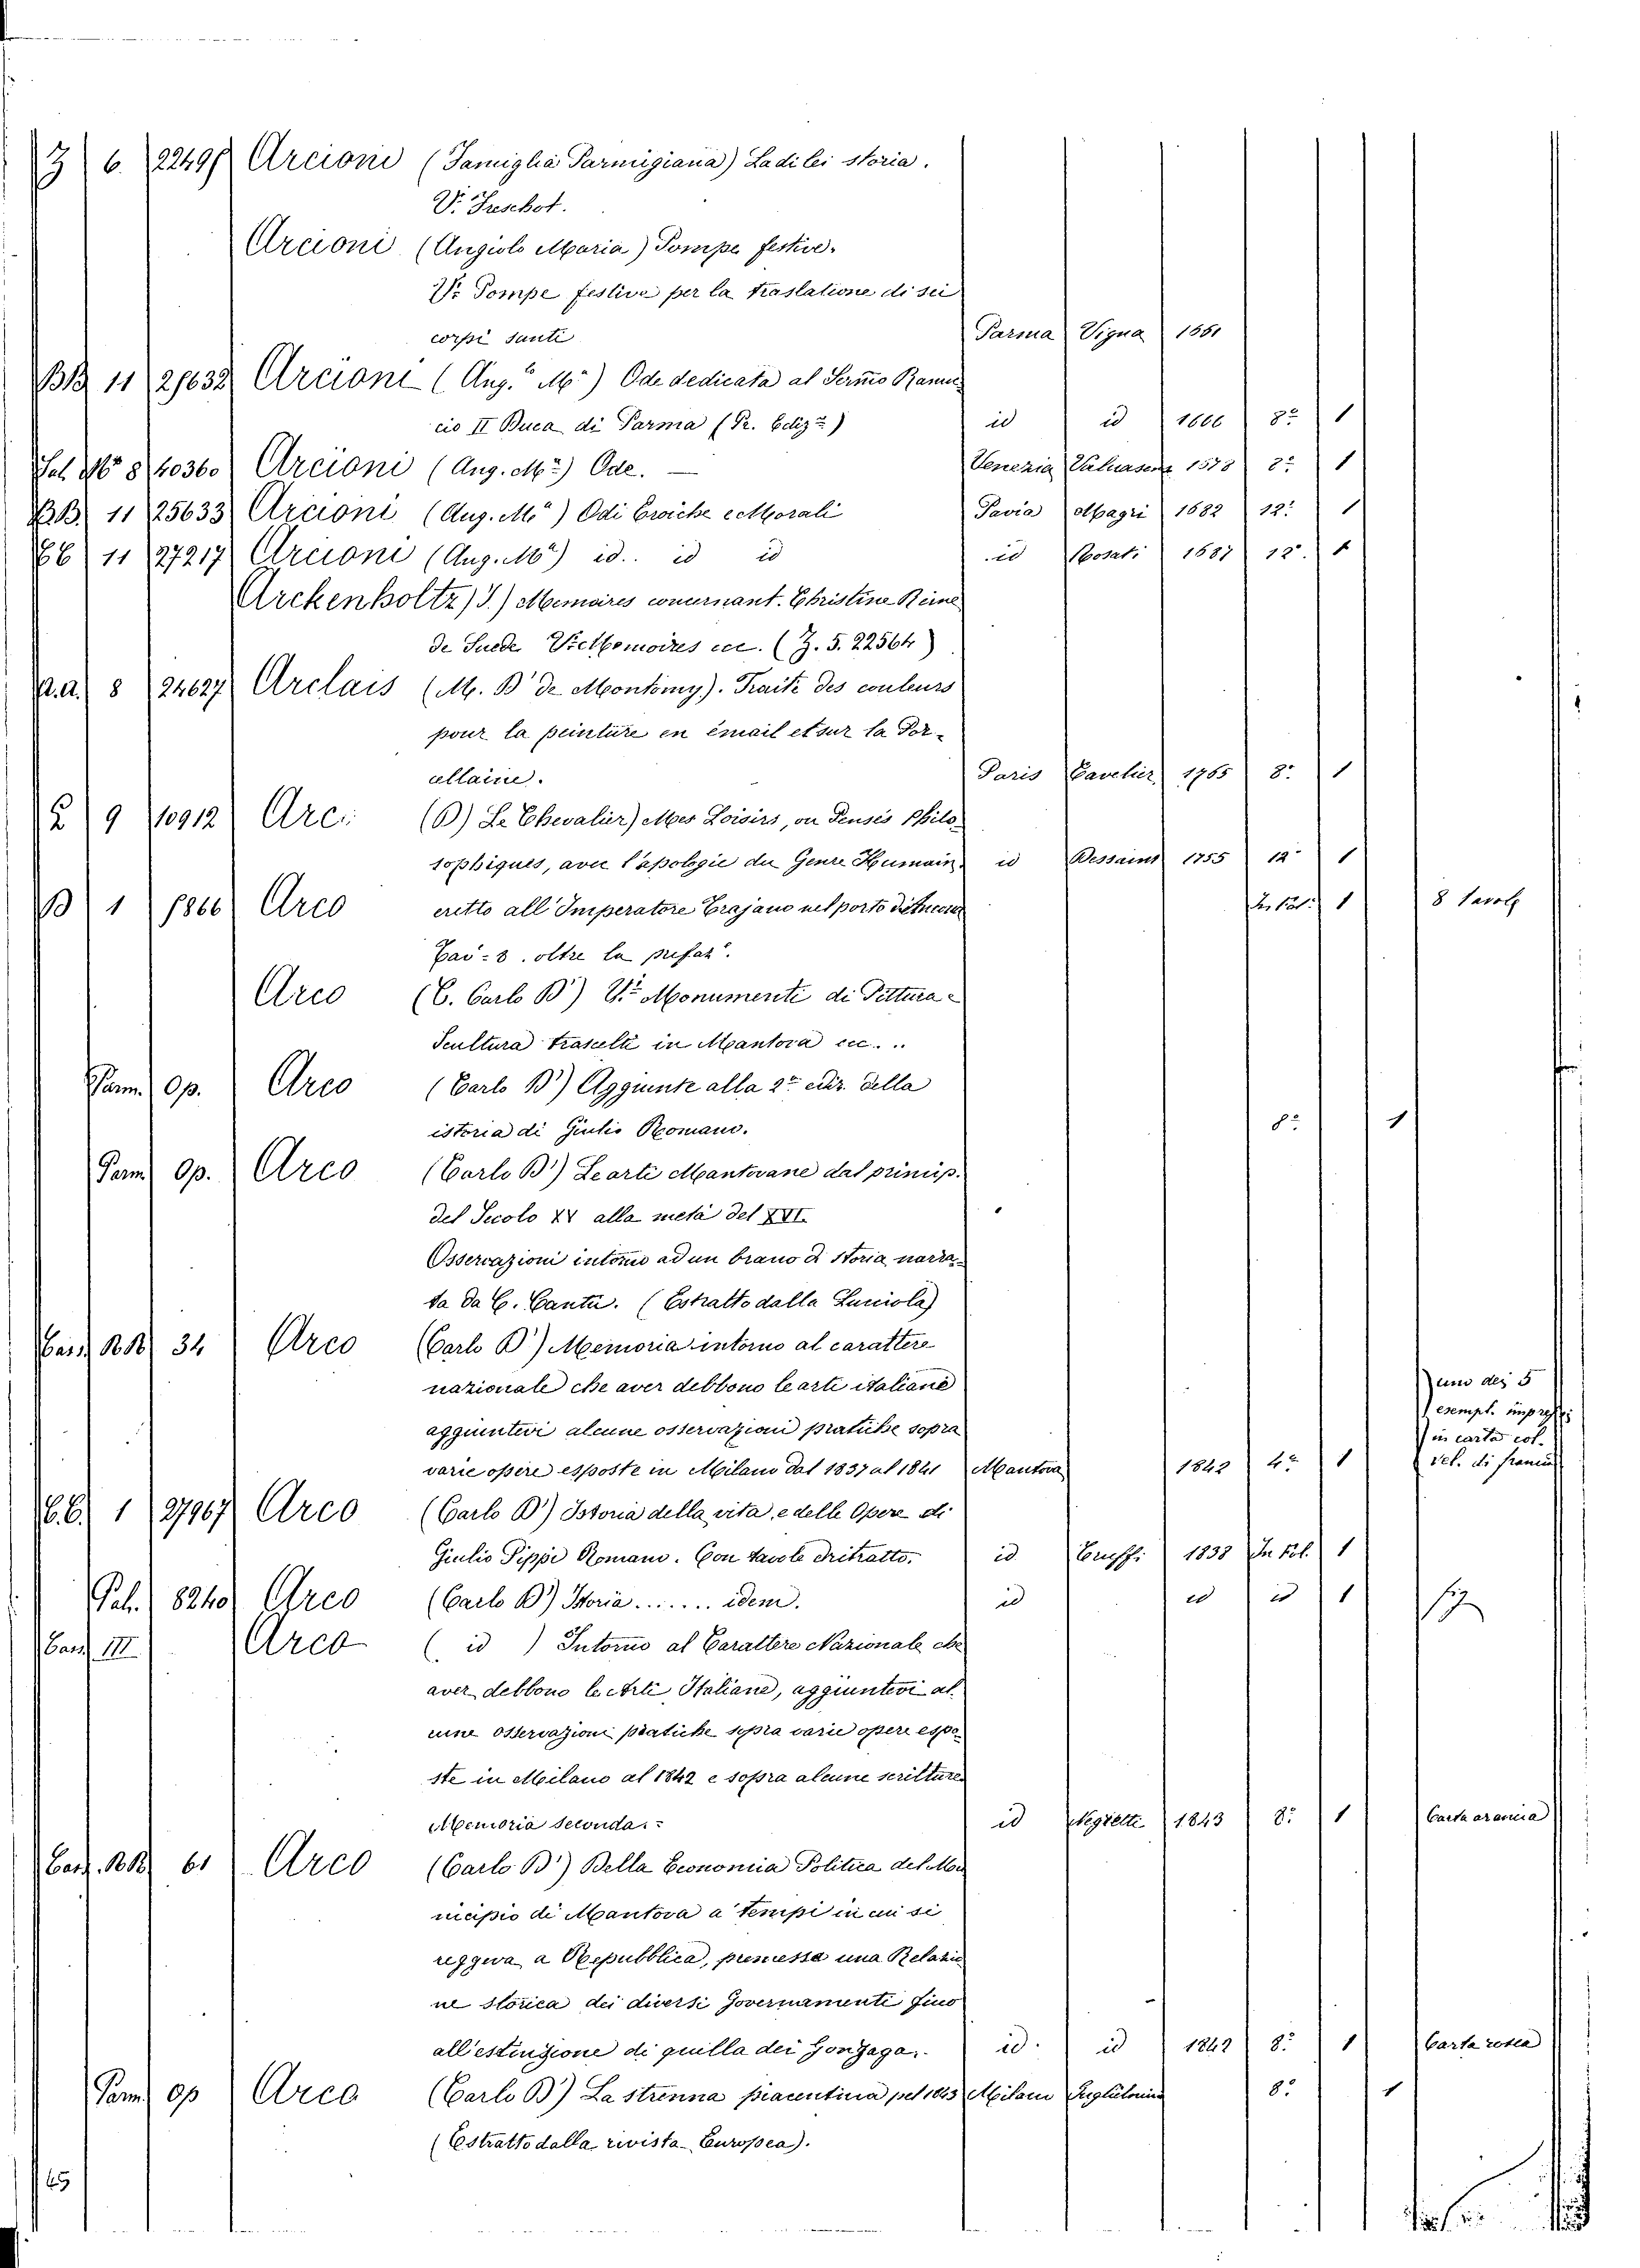 Z 6. 22491 Arcioni (Famiglia Parmigiana) La di lei storia.
V. Freschot.
Arcioni (Angiolo Maria) Pompe festive.
V. Pompe festive per la traslatione di sei
corpi santi Parma Vigna 1661
BB 11 27632 Arcioni (Aug.o M.a) Ode dedicata al Sermo Ranuc
cio II Duca di Parma id id 1666 8.o 1
Sal. 8 40360 Arcioni (Aug. M.a) Ode. — Venezia 1573 8.o 1
BB. 11 25633 Arcioni (Aug. M.a) Odi Eroiche e Morali Pavia Magri 1682 12.o 1
11 27217 Arcioni (Aug. M.a) id.. id id id Rosati 1687 12.o 1
Arckenholtz) J.) Memoires concernant. Christine Reine
de Suede (Z. 5. 22564)
A.A. 8 24627 Arclais (M. D' de Montomy). Traité des couleurs
pour la peinture en émail et sur la Por-
cellaine. Paris Cavelier 1765 8.o 1
9 10912 Arc.: Le Chevalier) Mes Loisirs, ou Pensés Philo
sophiques, avec l'apologie du Genre Humain. id Dessaint 1755 12.o 1
B 1 1866 Arco eretto all Imperatore Trajano nel porto d'Ancona In fol. 1 8 tavole
Tav. 8. oltre la prefaz.
Arco (C. Carlo D') V. Monumenti di Pittura e
Scultura trascelti in Mantova ec...
Parm. Op. Arco (Carlo D') Aggiunte alla 2.a ediz. della
istoria di Giulio Romano. 8.o 1
Parm. Op. Arco (Carlo D') Le arti Mantovane dal princip.
del Secolo XV alla metà del XVI.
Osservazioni intorno ad un brano di storia narra-
ta da C. Cantù. (Estratto dalla Lucciola)
Cass. BB 34 Arco (Carlo D') Memoria intorno al carattere
nazionale che aver debbono le arti italiane
aggiuntevi alcune osservazioni pratiche sopra
varie opere esposte in Milano dal 1837 al 1841 Mantova 1842 4.o 1
uno dei 5
esempl. impressi
in carta col.
1 27967 Arco (Carlo D') Istoria della vita, e delle Opere di
Giulio Pippi Romano. Con tavole e ritratto. id 1838 In fol. 1
Pal. 8240 Arco (Carlo D') Storia....... idem. id id id 1 fig
Cass. III Arco (id) Intorno al Carattere Nazionale che
aver debbono le Arti Italiane, aggiuntevi al-
cune osservazioni pratiche sopra varie opere espo-
ste in Milano al 1842 e sopra alcune scritture
Memoria seconda.- id Negretti 1843 8.o 1 Carta arancia
Cass. BB 61 Arco (Carlo D') Della Economia Politica del Mu
nicipio di Mantova a tempi in cui si
reggeva a Repubblica, premessa una Relazio
ne storica dei diversi Governamenti fino
all'estinzione di quella dei Gonzaga. id. id 1842 8.o 1 Carta rosea
Parm. Op Arco (Carlo D') La strenna piacentina pel 1843 Milano Guglielmini 8.o 1
(Estratto dalla rivista Europea).